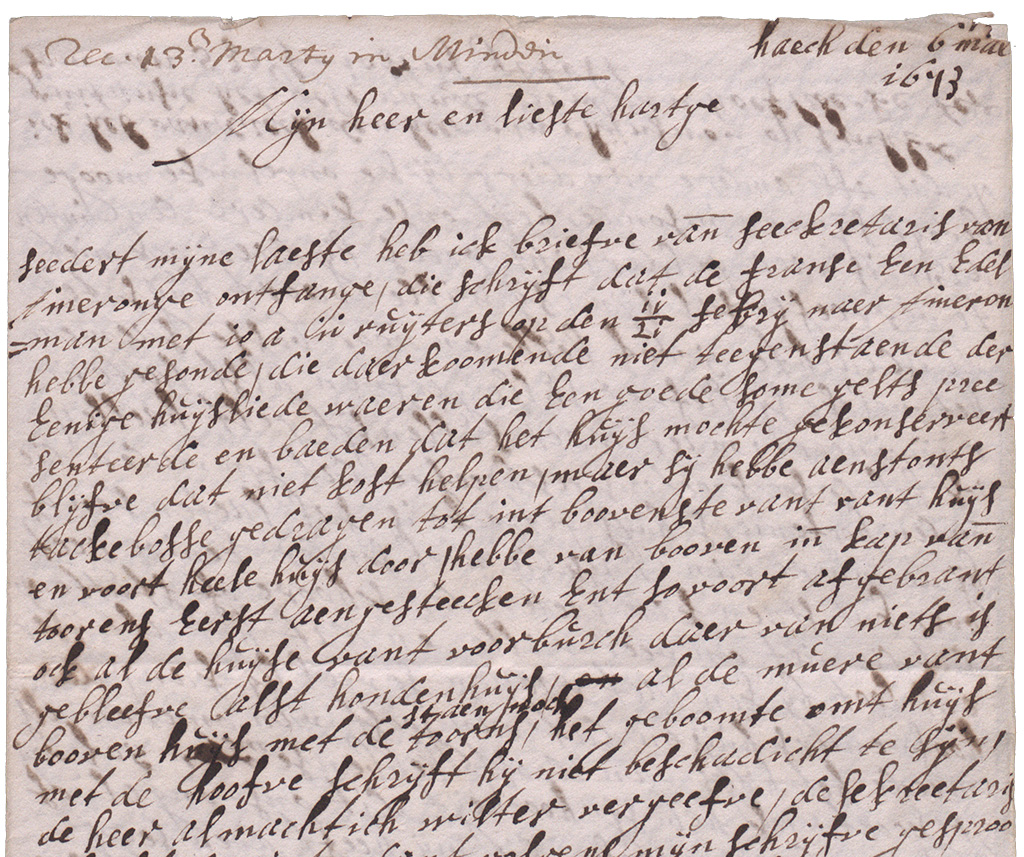 Rec. 13. Marty in Minden
haeck den 6 mar
1673
Mijn heer en liefste hartge
seedert mijne laeste heb ick briefve van seeckretaris van
Ameronge ontfange, die schrijft dat de franse Een Edel
=man met 10 a 12 ruijters op den 11/21 febrij naer Ameron
hebbe gesonde, die daer koomende niet teegenstaende der
Eenige huijsliede waeren die Een goede some gelts pree
senteerde en baeden dat het huijs mochte gekonserveert
blijfve dat niet kost helpen, maer sij hebbe aenstonts
tackebosse gedragen tot int boovenste vant vant huijs
en voort heele huijs door, hebbe van booven in kap van
toorens Eerst aengesteecken Ent so voort afgebrant
ock al de huijse vant voorburch daer van niets is
gebleefve alst hondenhuijs, en al de muere vant
booven huijs met de toorens, staen noch het geboomte omt huijs
met de hoofve schrijft hij niet beschadicht te sijn,
de heer almachtich wilter vergeefve, de sekreetaris
mijn schrijfve gesproo